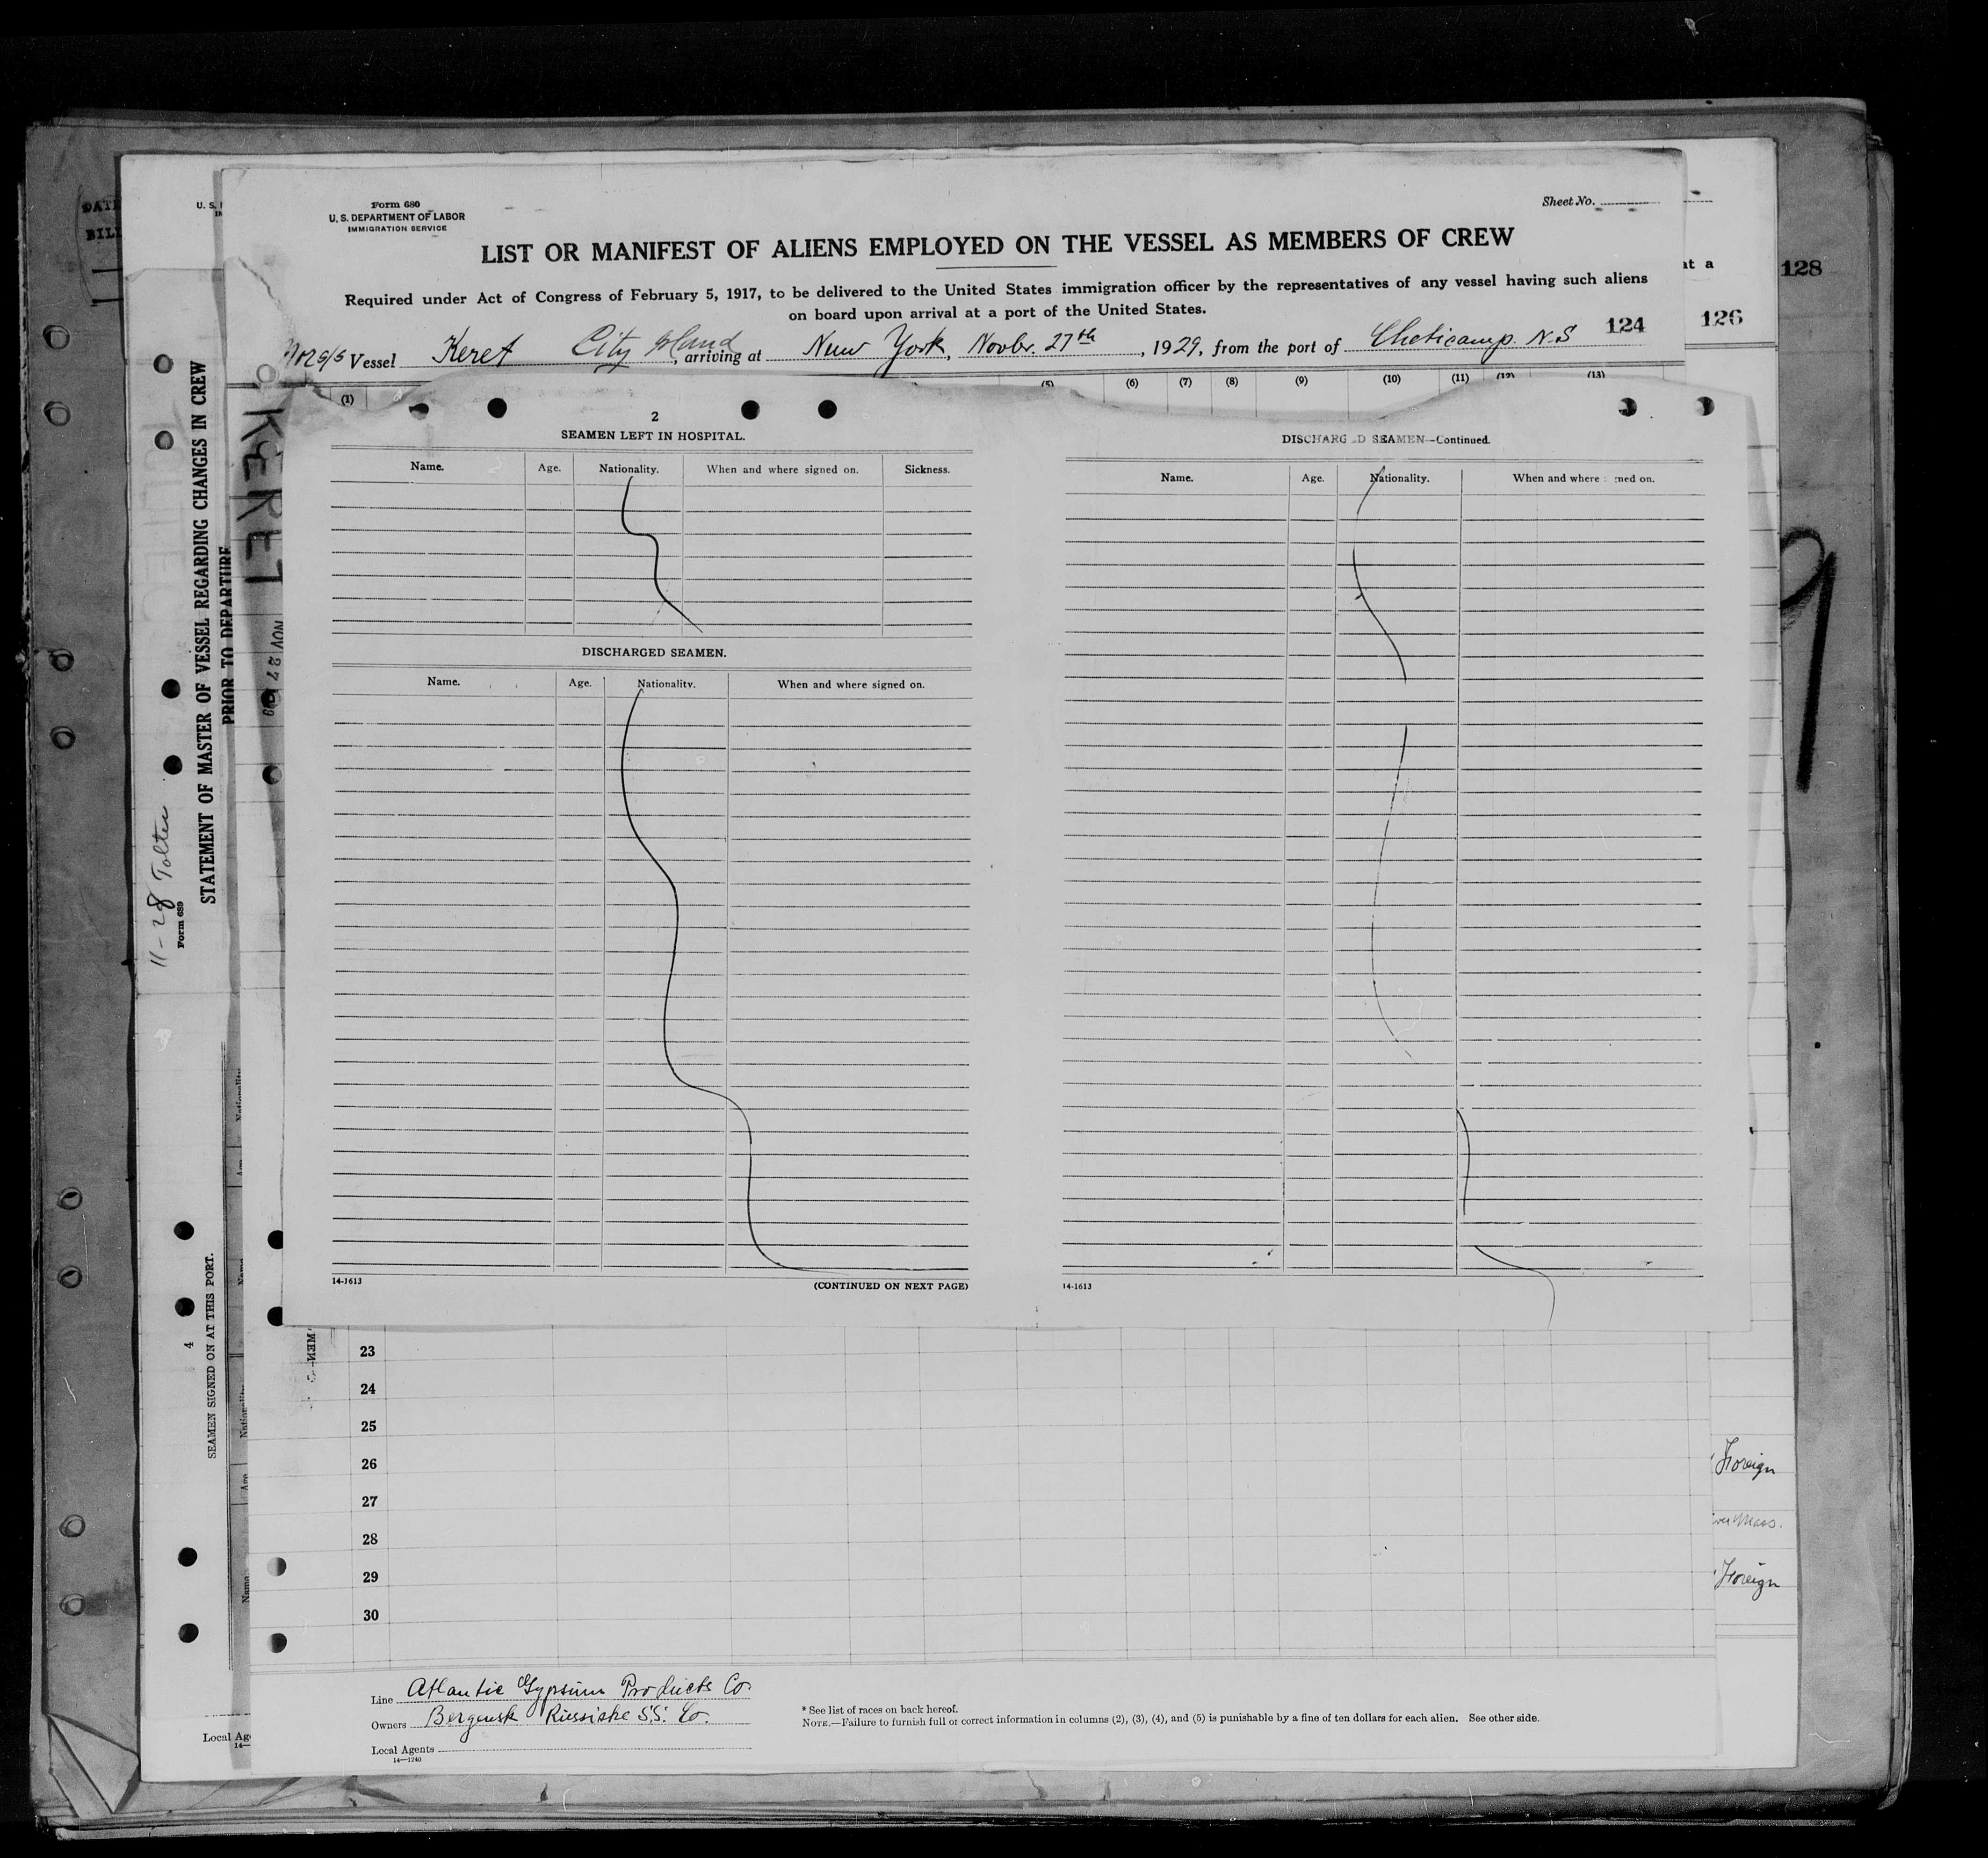 Form 680
U. S. DEPARTMENT OF LABOR
IMMIGRATION SERVICE
Sheet No.
LIST OR MANIFEST OF ALIENS EMPLOYED ON THE VESSEL AS MEMBERS OF CREW
Required under Act of Congress of February 5, 1917, to be delivered to the United States immigration officer by the representatives of any vessel having such aliens
on board upon arrival at a port of the United States.
at a
128
124
126
Nor s/s Vessel Keret City Island, arriving at New York, Novbr. 27th, 1929, from the port of Cheticamp. N.S
(1) (5) (6) (7) (8) (9) (10) (11) (12) (13)
2
SEAMEN LEFT IN HOSPITAL.
Name. Age. Nationality. When and where signed on. Sickness.
DISCHARGED SEAMEN.
Name. Age. Nationality. When and where signed on.
14-1613 (CONTINUED ON NEXT PAGE)
DISCHARGED SEAMEN—Continued.
Name. Age. Nationality. When and where signed on.
14-1613
23
24
25
26
27
28
29
30
Foreign
Mass.
Foreign
Line Atlantic Gypsum Products Co.
Owners Bergensk Russiske S.S. Co.
Local Agents
14—1240
* See list of races on back hereof.
NOTE.—Failure to furnish full or correct information in columns (2), (3), (4), and (5) is punishable by a fine of ten dollars for each alien. See other side.
U. S.
DATE
BILL
STATEMENT OF MASTER OF VESSEL REGARDING CHANGES IN CREW
PRIOR TO DEPARTURE
Form 689
11-28 Tolten
KERET
NOV 27
4
SEAMEN SIGNED ON AT THIS PORT.
Name Age Nationality
Name Age Nationality
Local Ag
14—
9